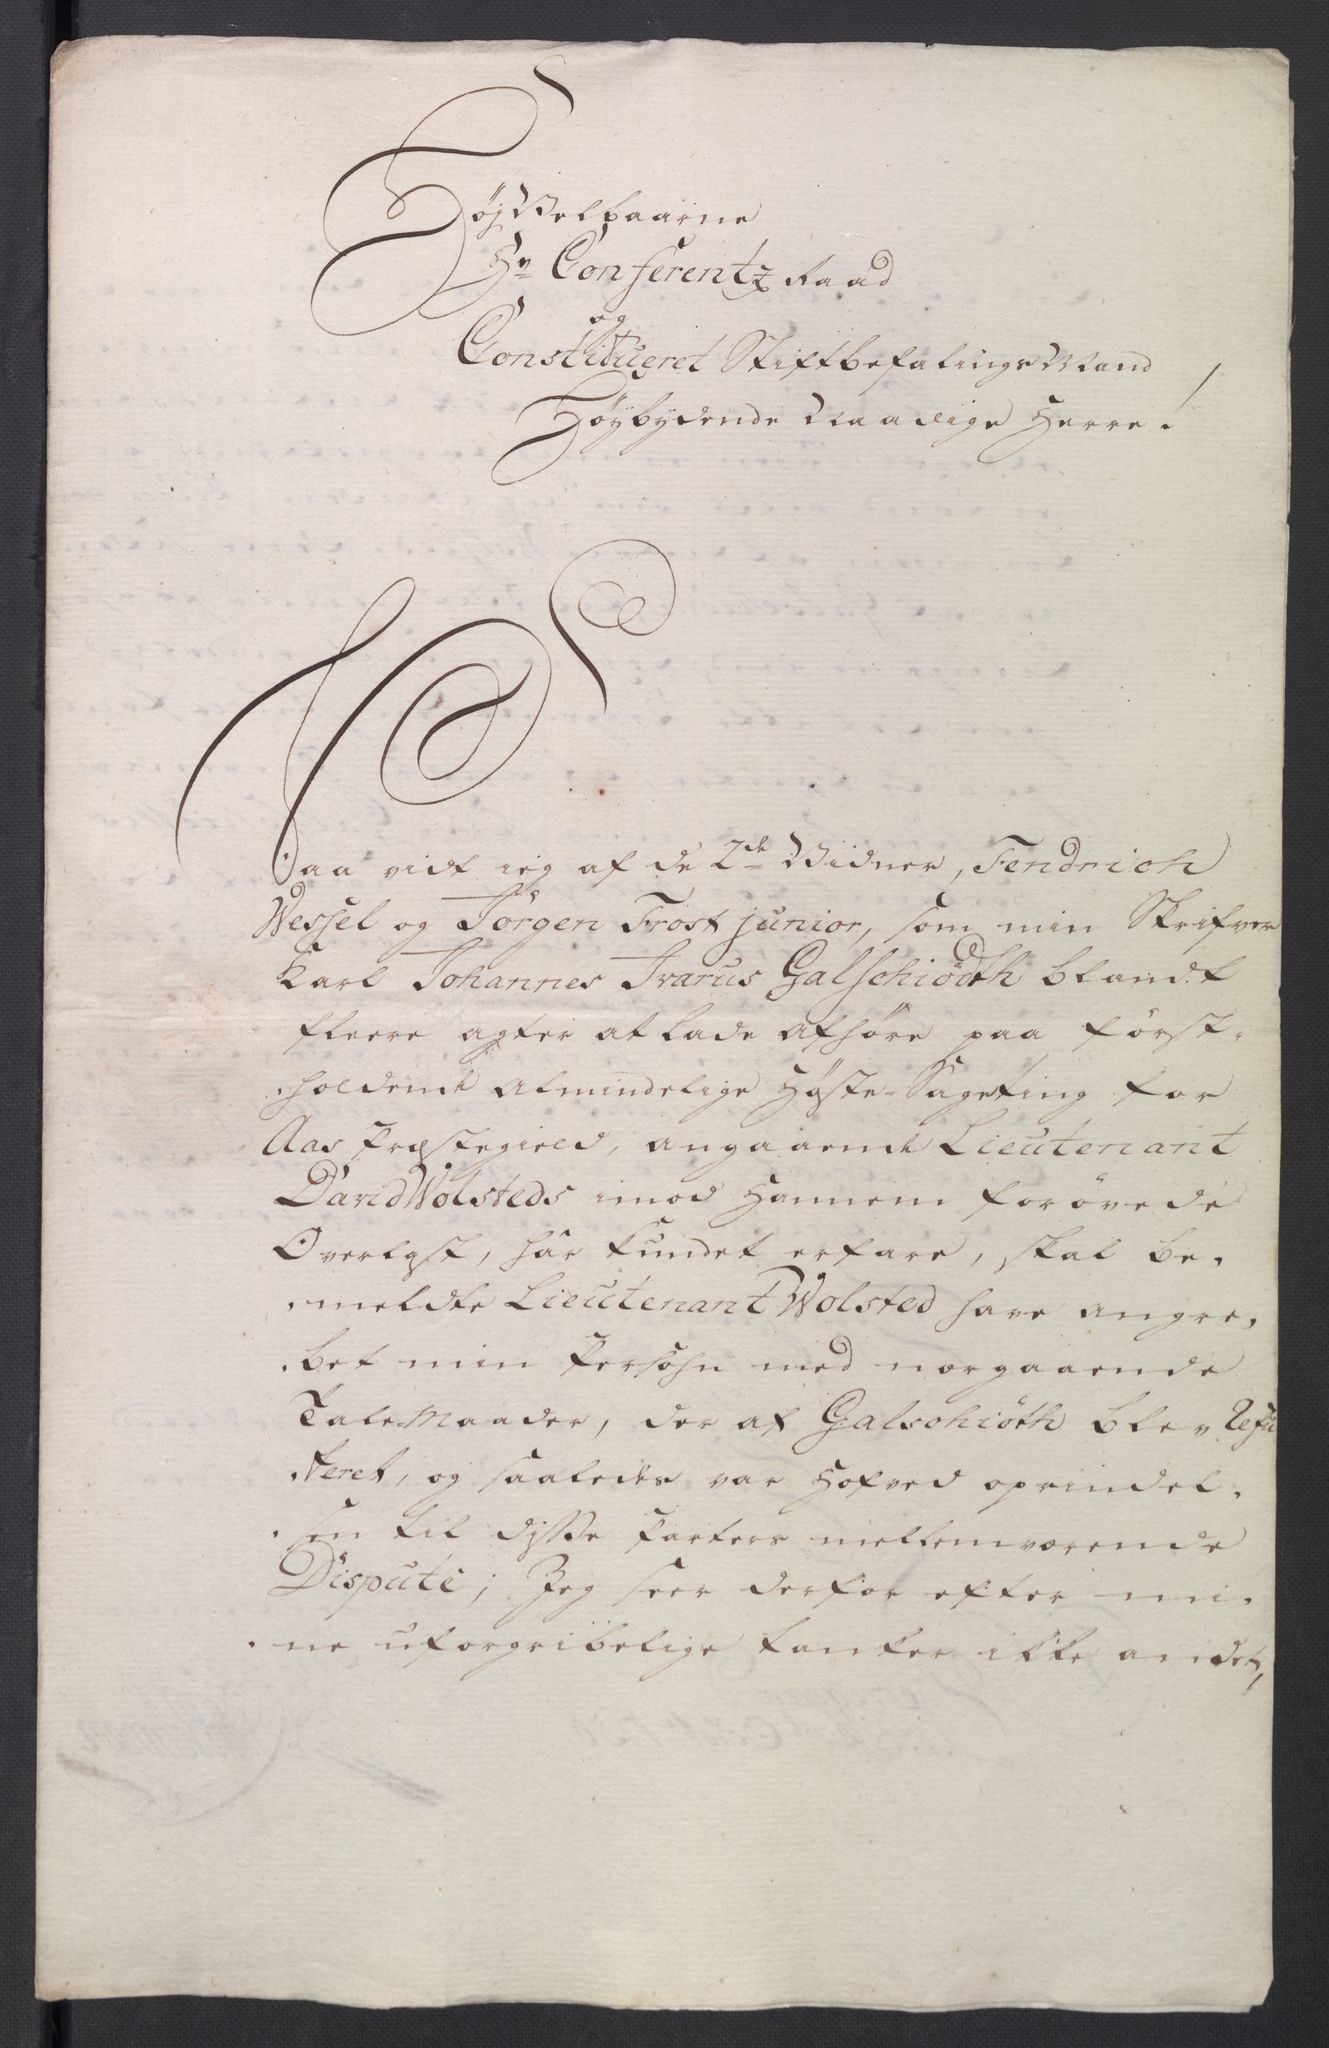 HöyVelbaarne
Hr Conferentz Raad
og
Constitueret StiftbefalingsMand
Höybydende Naadige Herre!
Saa vidt ieg af de 2de Vidner, Fendrich
Wessel og Jörgen Frost junior, som min Skrifver
Karl Johannes Ivarus Galschiödth blandt
fleere agter at lade afhöre paa först-
holdende almindelige Höste-Sageting for
Aas Præstegield, angaaende Lieutenant
David Wolsteds imod Hannem forövede
Overlast, har kundet erfare, skal be-
meldte Lieutenant Wolsted have angre-
bet min Persohn med nærgaaende
TaleMaader, der af Galschiöth blev Refu
teret, og saaledes var Hofved oprindel-
sen til disse Parters mellemværende
Dispute; Jeg seer derfor efter mi-
ne uforgribelige tanker ikke andet,